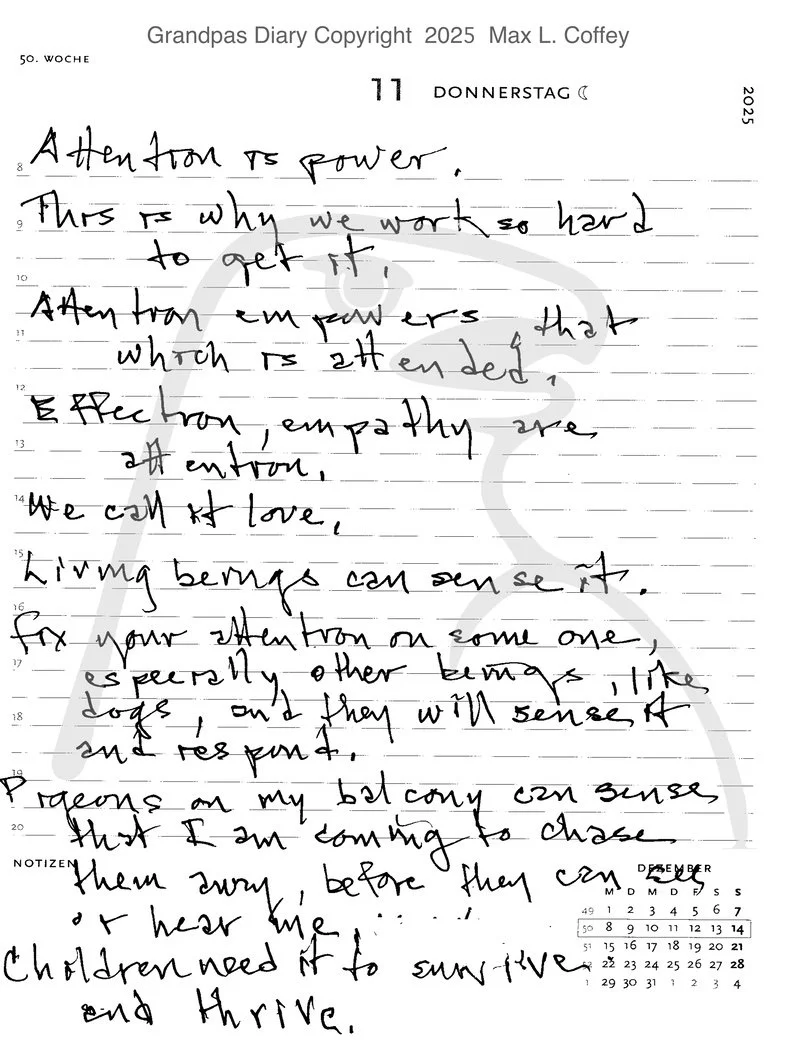 Grandpas Diary Copyright 2025 Max L. Coffey
50. WOCHE
11 DONNERSTAG
2025
8 Attention is power.
9 This is why we work so hard
to get it.
10
Attention empowers, that
11 which is attended.
12 Effection, empathy are
13 attention.
14 We call it love.
15 Living beings can sense it.
16 fix your attention on some one,
17 especially other beings, like
dogs, and they will sense it
18 and respond.
19 Pigeons on my balcony can sense
20 that I am coming to chase
NOTIZEN
them away, before they can see
or hear me.
Children need it to survive
and thrive.
DEZEMBER
M D M D F S S
49 1 2 3 4 5 6 7
50 8 9 10 11 12 13 14
51 15 16 17 18 19 20 21
52 22 23 24 25 26 27 28
1 29 30 31 1 2 3 4